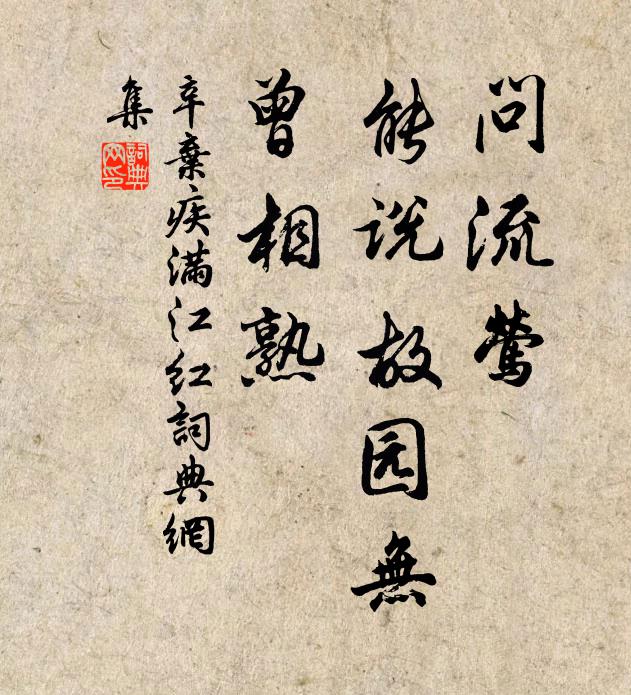 问流莺
能说故园無
曾相熟
辛棄疾满江红詞典網
集
詞典
网印